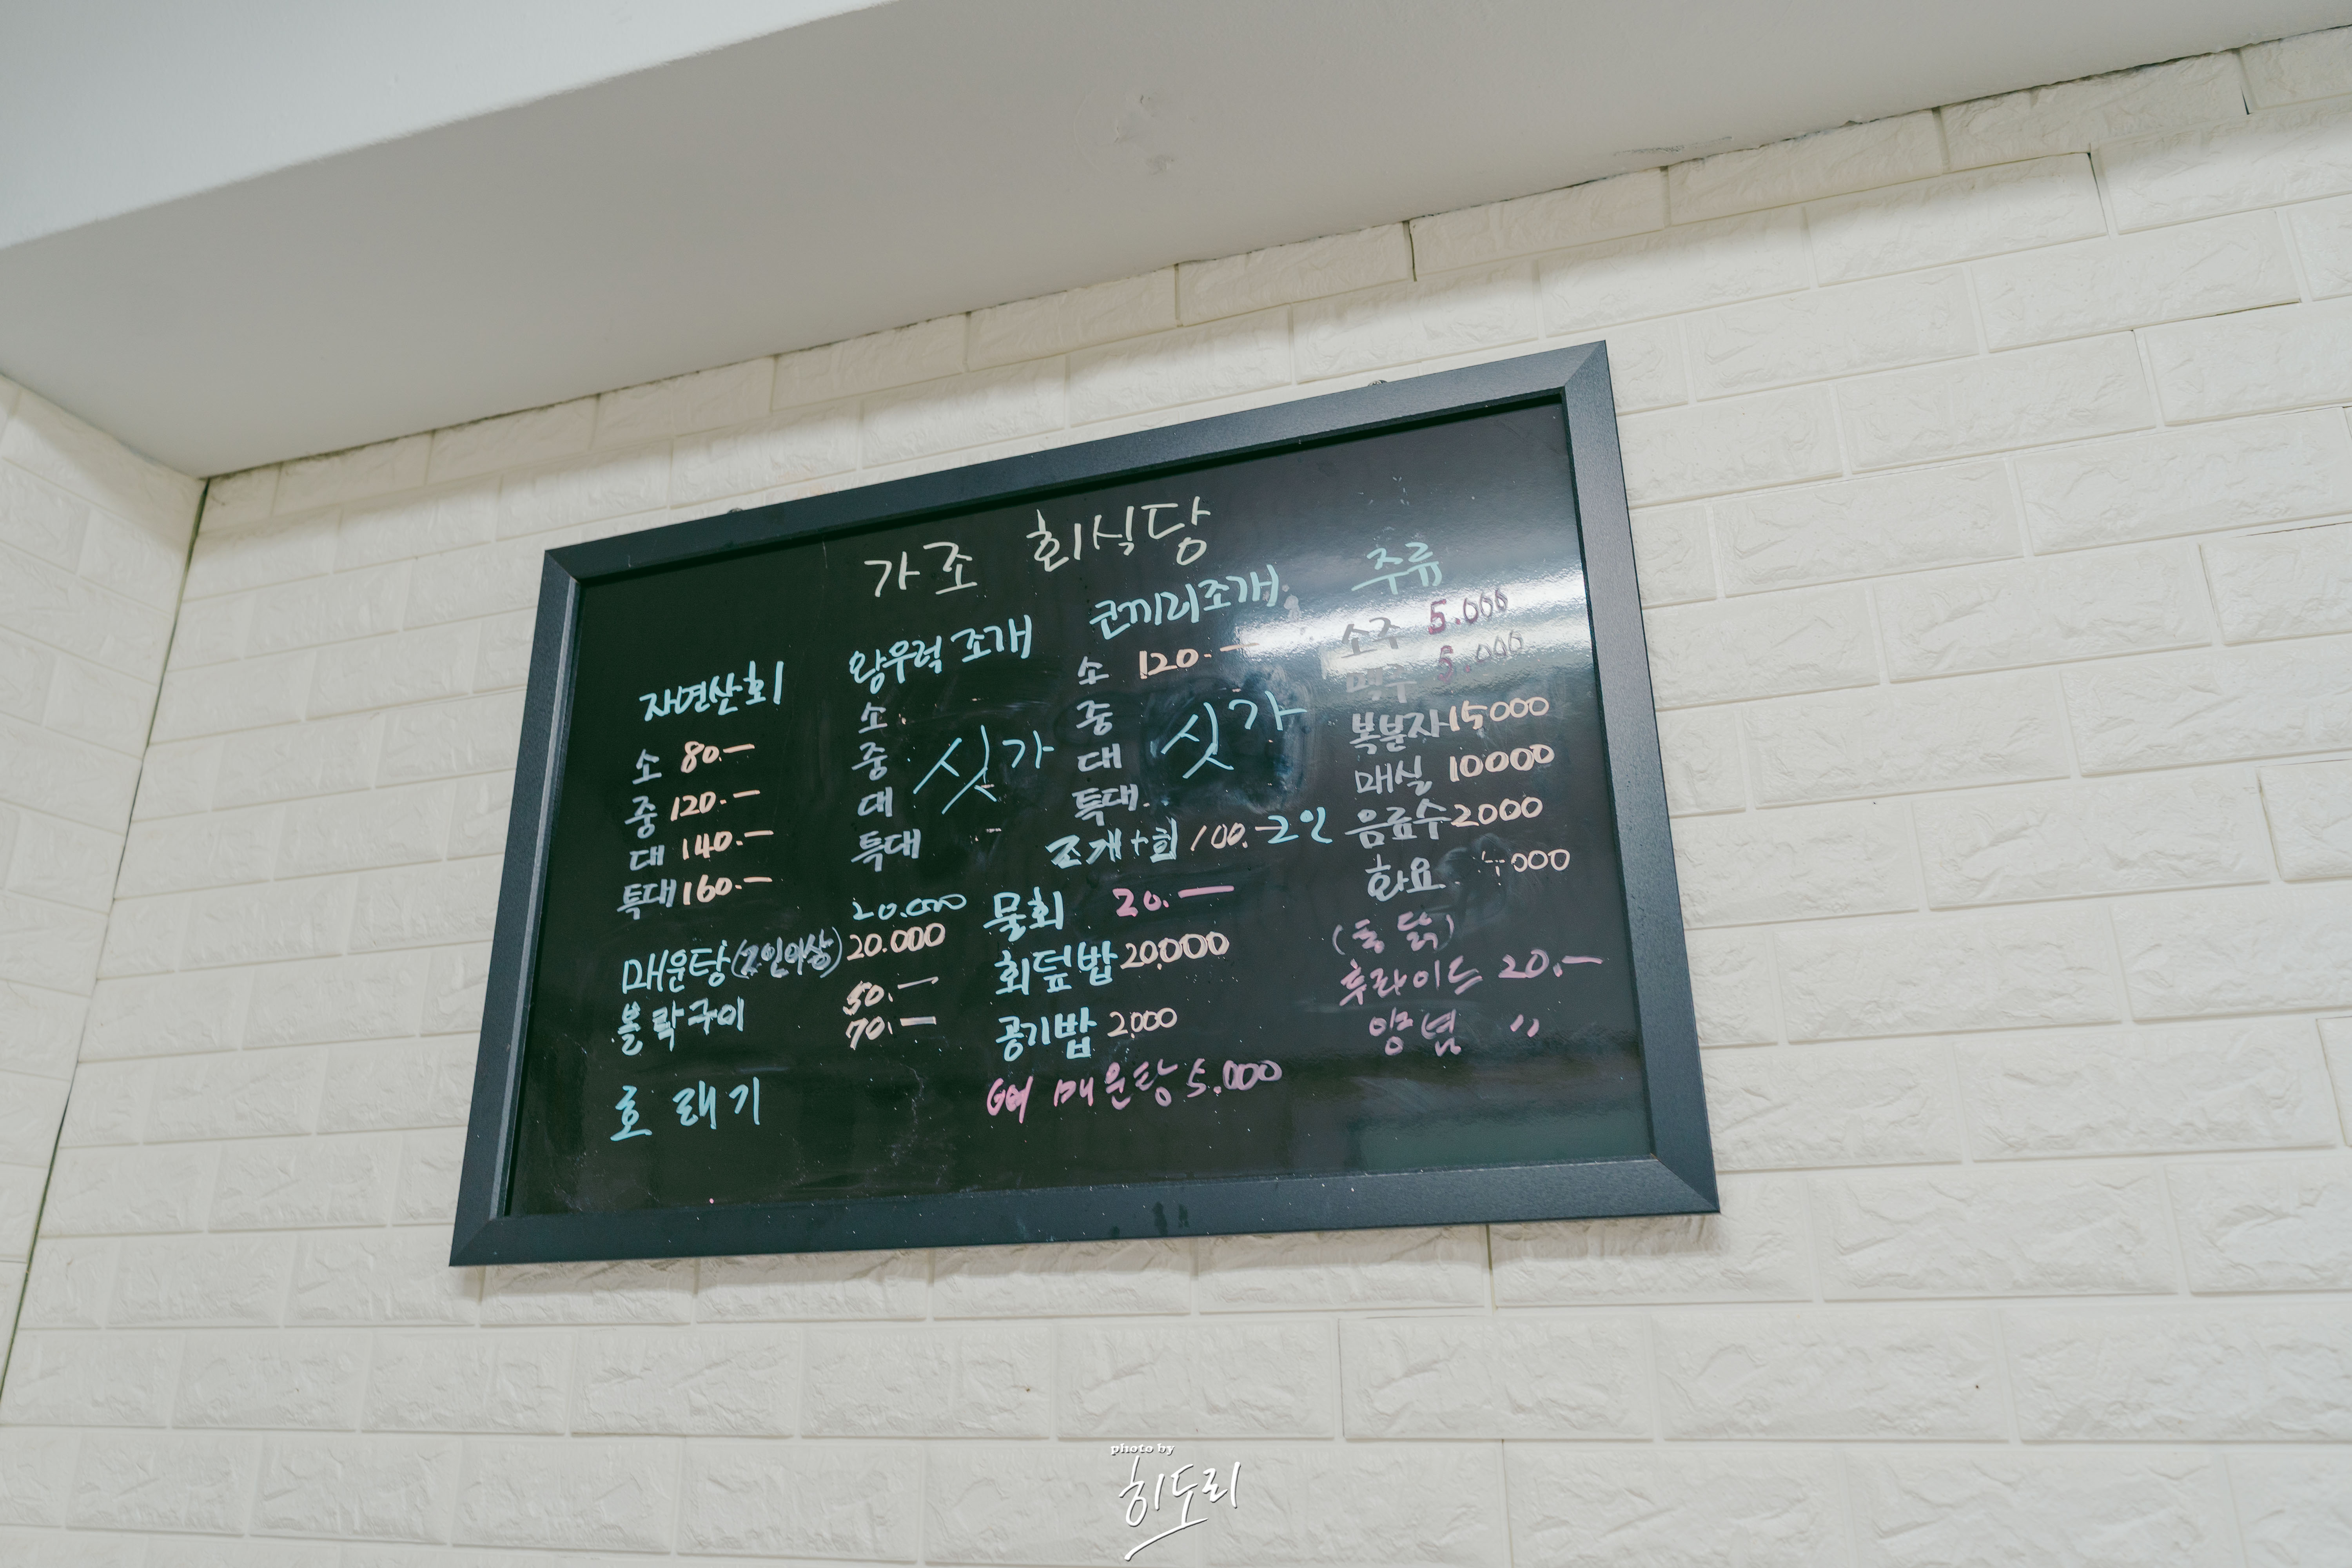 가조 회식당
자연산회
소 80.-
중 120.-
대 140.-
특대 160.-
왕우럭 조개
소
중
대
특대
싯가
코끼리조개
소 120.-
중
대
특대
싯가
조개+회 100.- 2인
20.000
매운탕(2인이상) 20.000
볼락구이 50.-
70.-
호래기
물회 20.-
회덮밥 20,000
공기밥 2000
뼈 매운탕 5.000
주류
소주 5.000
맥주 5.000
복분자 15000
매실 10000
음료수 2000
화요
(통닭)
후라이드 20.-
양념 〃
photo by
히도리